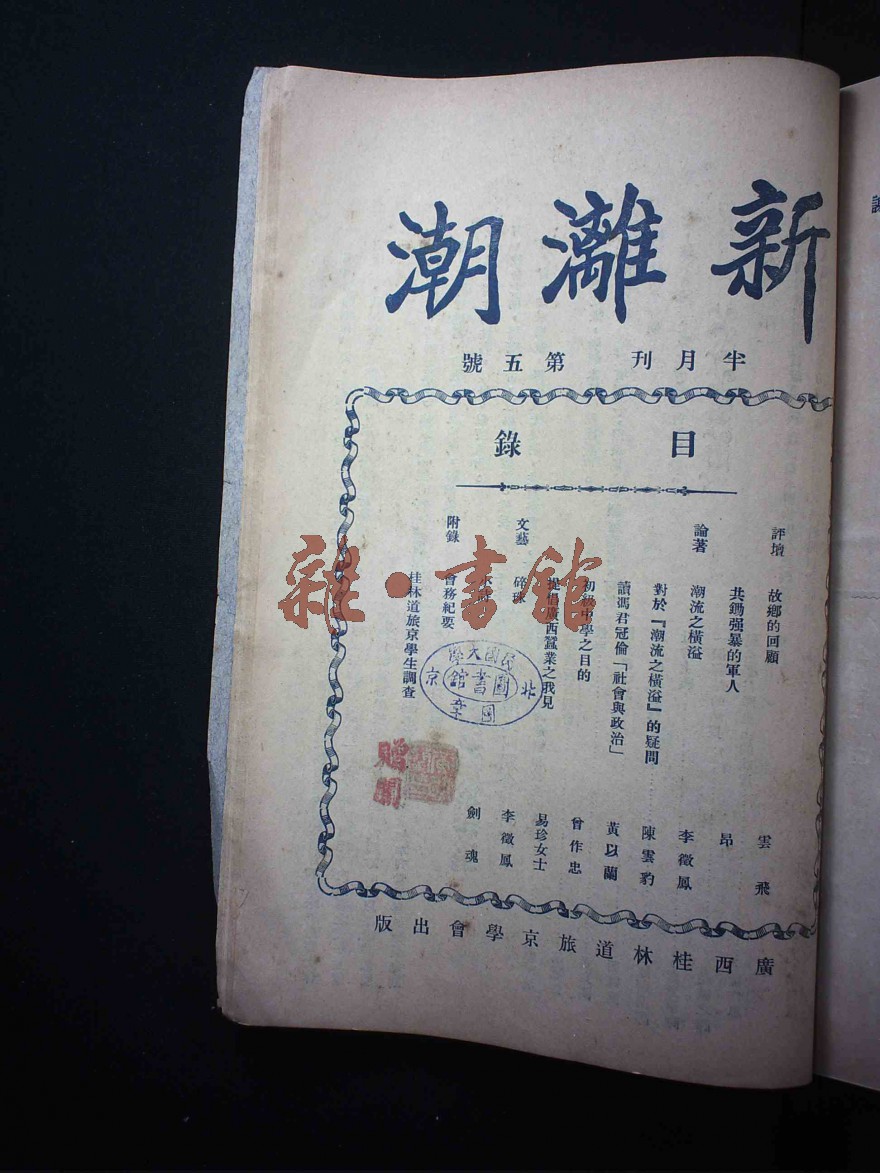 新灕潮
半月刊 第五號
目錄
評壇 故鄉的回顧 雲飛
共鋤强暴的軍人 昂
論著 潮流之橫溢 李微鳳
對於『潮流之橫溢』的疑問 陳雲豹
讀馮君冠倫「社會與政治」 黃以蘭
初級中學之目的 曾作忠
提倡廣西蠶業之我見 易珍女士
文藝 碎琭 李微鳳
劍魂
附錄 會務紀要
桂林道旅京學生調查
廣西桂林道旅京學會出版
北京民國大學
圖書館
圖章
雜·書館